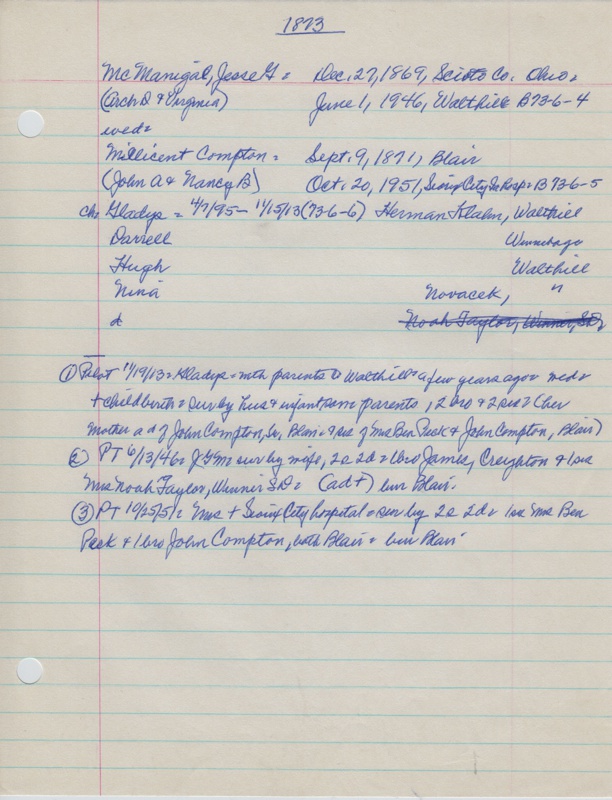 1873
McManigal, Jesse G = Dec. 27, 1869, Scioto Co. Ohio =
(Arch D & Virginia) June 1, 1946, Walthill B73-6-4
wed =
Millicent Compton = Sept. 9, 1871, Blair
(John A & Nancy B) Oct. 20, 1951, Sioux City In Hosp = B73-6-5
ch Gladys = 4/7/95 - 11/15/13 (73-6-6) Herman Klahn, Walthill
Darrell Winnebago
Hugh Walthill
Nina Novacek, "
d Noah Taylor, Winner, SD
① Pilot 11/19/13 = Gladys = mth parents to Walthill = a few years ago = wed =
+ childbirth = sur by hus & infant son parents, 2 bro & 2 sis = (her
mother a d of John Compton, Sr, Blair = & sis of Mrs Ben Peck & John Compton, Blair)
② PT 6/13/46 = J G M = sur by wife, 2s 2d = 1 bro James, Creighton & 1 sis
Mrs Noah Taylor, Winner S.D = (ad +) bur Blair.
③ PT 10/25/51 = Mrs + Sioux City hospital = sur by 2s 2d = 1 sis Mrs Ben
Peck & 1 bro John Compton, both Blair = bur Blair